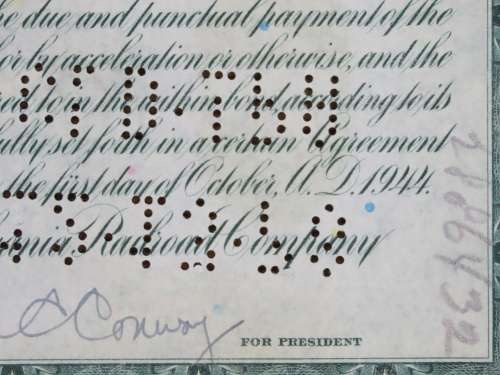 due and punctual payment of the
or by acceleration or otherwise, and the
to in the within bond, according to its
fully set forth in a certain Agreement
the first day of October, A.D. 1944.
ania Railroad Company
C Conway
FOR PRESIDENT